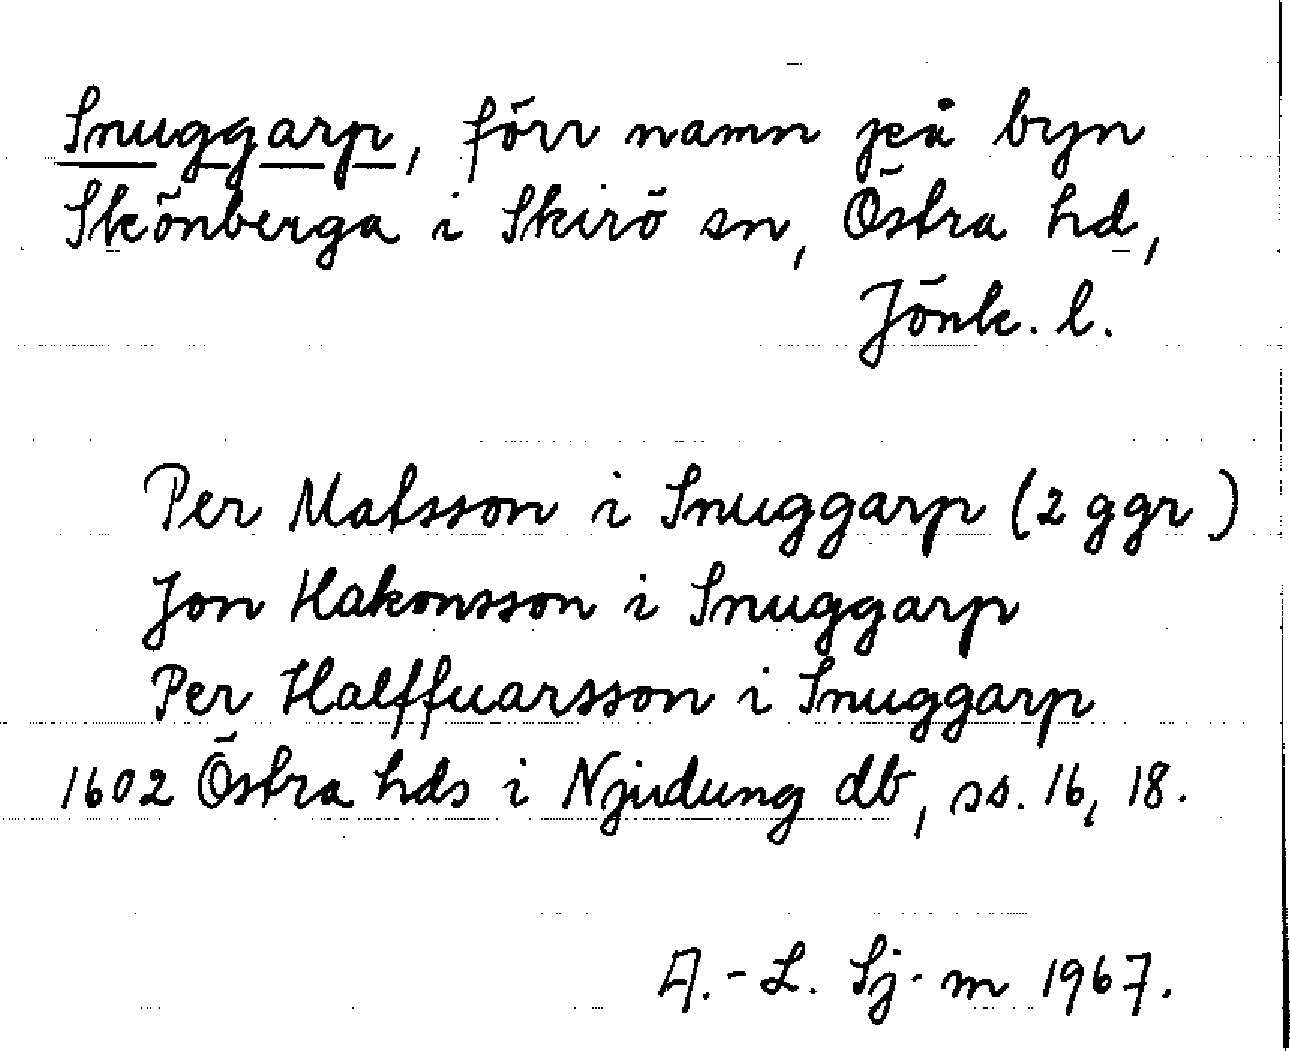 Snuggarp, förr namn på byn
Skönberga i Skirö sn, Östra hd,
Jönk. l.
Per Matsson i Snuggarp (2 ggr)
Jon Hakonsson i Snuggarp
Per Halffuarsson i Snuggarp
1602 Östra hds i Njudung db, ss. 16, 18.
A.-L. Sj-m 1967.